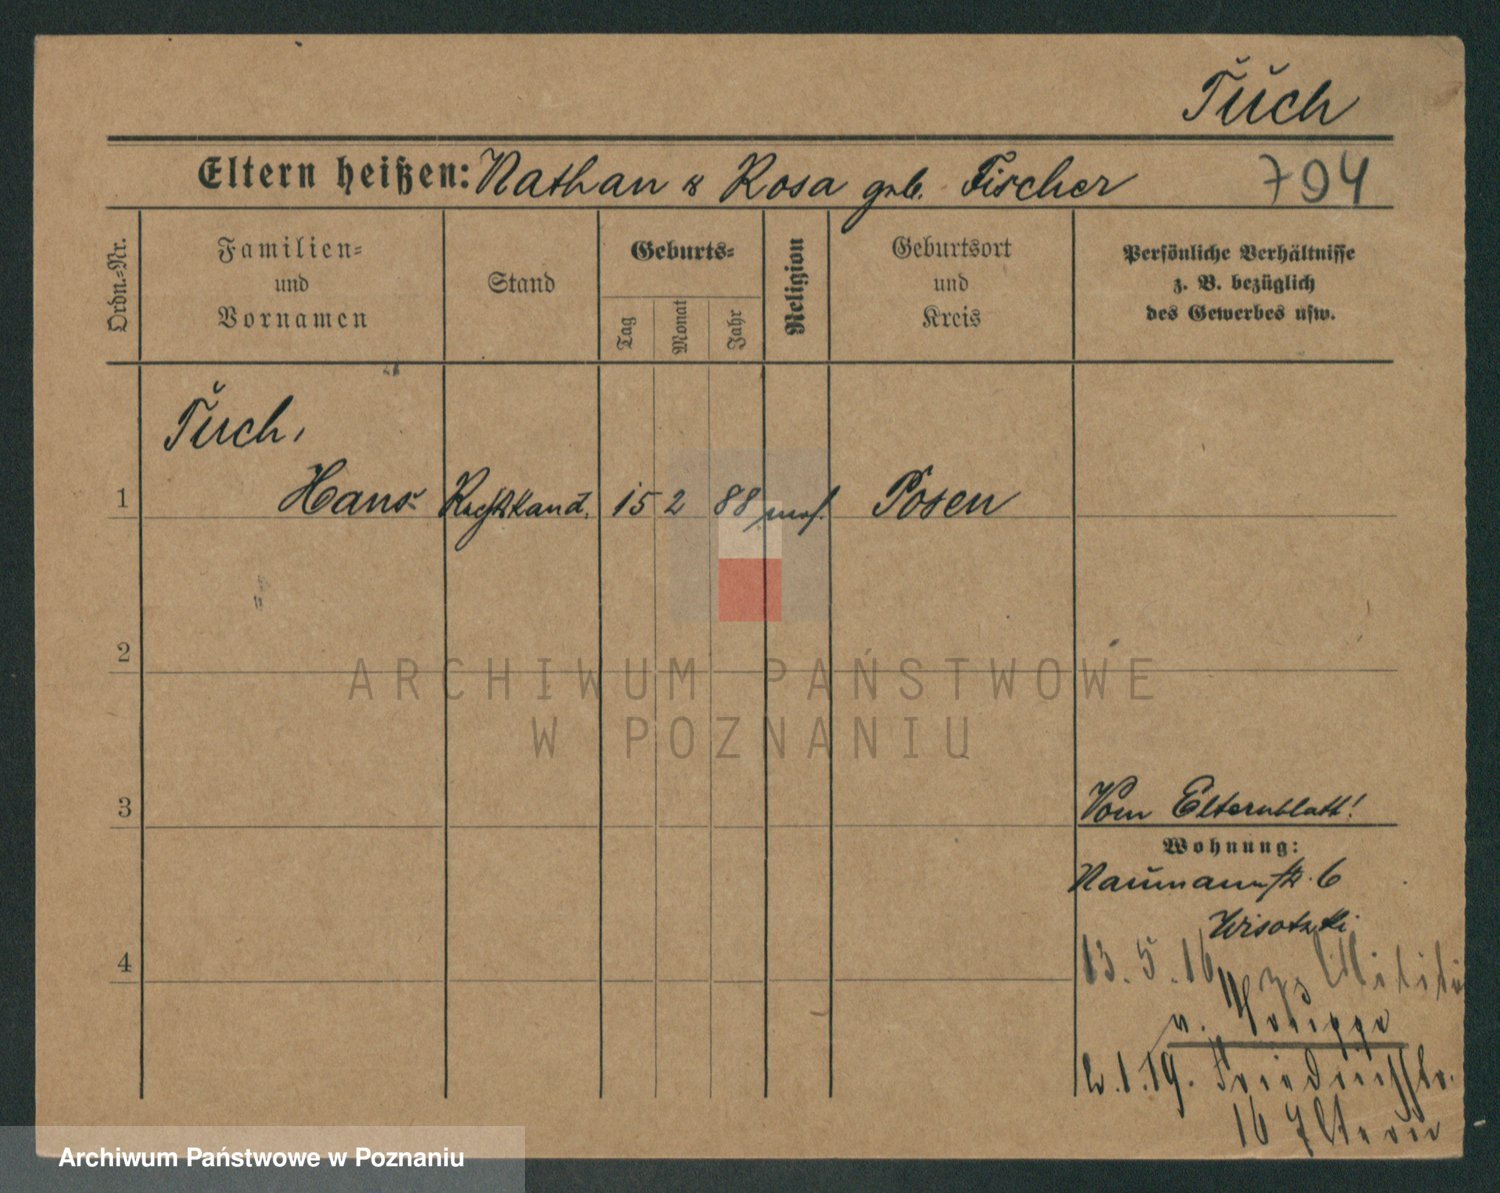 Tuch
Eltern heißen: Nathan & Rosa geb. Fischer 794
Ordn.-Nr.
Familien-
und
Vornamen
Stand
Geburts-
Tag
Monat
Jahr
Religion
Geburtsort
und
Kreis
Persönliche Verhältnisse
z. B. bezüglich
des Gewerbes usw.
Tuch,
1 Hans Rechtskand. 15 2 88 mos. Posen
2
ARCHIWUM PAŃSTWOWE
W POZNANIU
3
Vom Elternblatt!
Wohnung:
Naumannstr. 6
Wisotzki
4
13. 5. 16
v.
2. 1. 19. Friedrichstr.
16 Eltern
Archiwum Państwowe w Poznaniu